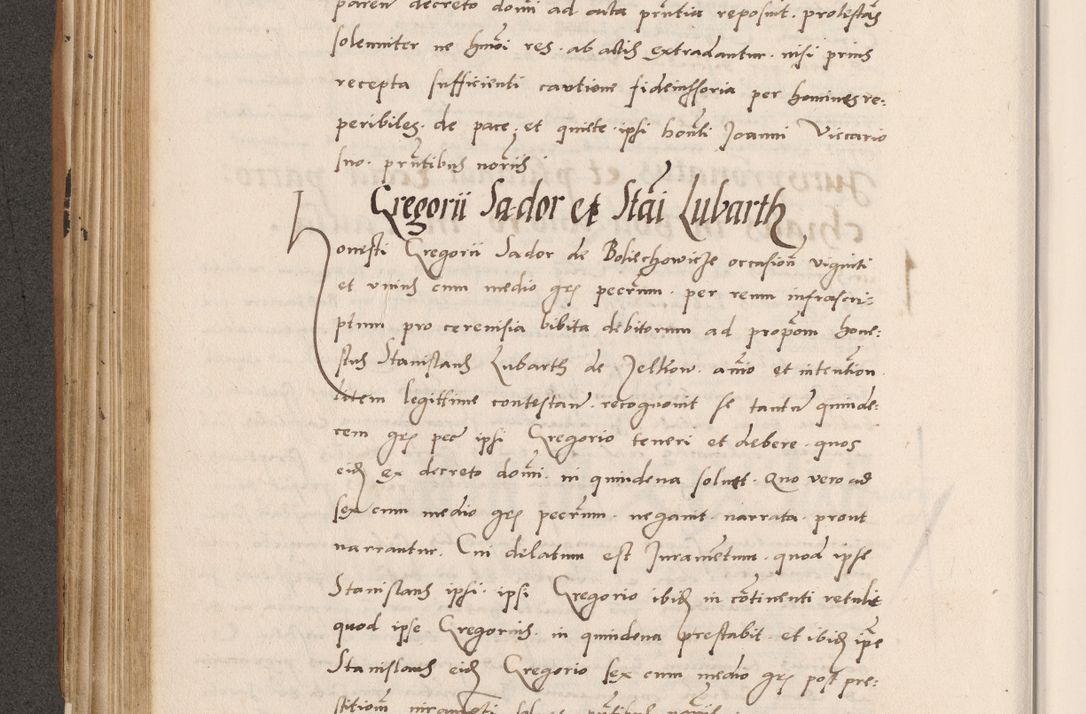 paren decreto domi ad acta pntia reposuit. protestans
solenniter ne hmoi res. ab actis extradantur. nisi prius
recepta sufficienti cautione fideiussoria per homines re:
peribiles. de pace. et quiete. ipsi honesti Joanni Viccario
suo. pntibus noriis
Gregorii Sador et Stai Lubarth
Honesti Gregorii Sador de Boliechowicze occasion viginti
et unius cum medio grs pecrum. per reum infrascri:
ptum pro cerevisia bibita debitorum ad propom hone:
stus Stanislaus Lubarth de Jelkow. aio et intention
litem legittime contestan. recognovit se tantum quinde:
cem grs pec ipsi Gregorio teneri et debere. quos
eid ex decreto domi. in quindena solvet. Quo vero ad
sex cum medio grs pecrum. negavit. narrata. prout
narrantur. Cui delatum est Juramentum. quod ipse
Stanislaus ipsi. ipsi Gregorio ibid in cotinenti retulit
quod ipse Gregorius. in quindena prestabit. et ibid ipse
Stanislaus eid Gregorio sex cum medio grs post pre:
stitiom